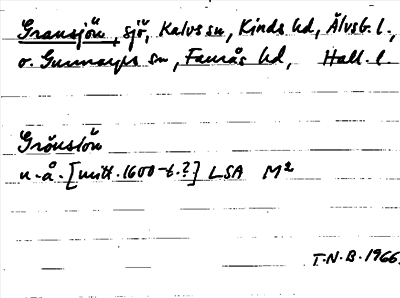 Gransjön, sjö, Kalvs sn, Kinds hd, Älvsb. l.,
o. Gunnarps sn, Faurås hd, Hall. l.
Grönsiön
u. å. [mitt. 1600-t.?] LSA M²
T.N.B. 1966.